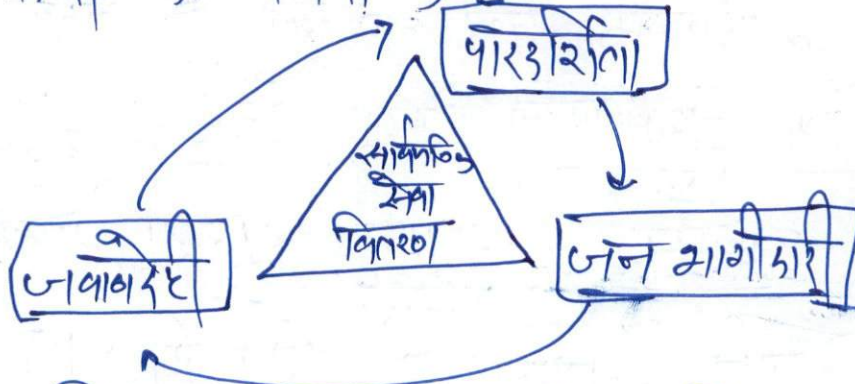 पारदर्शिता
सार्वजनिक
सेवा
वितरण
जवाबदेही
जन भागीदारी